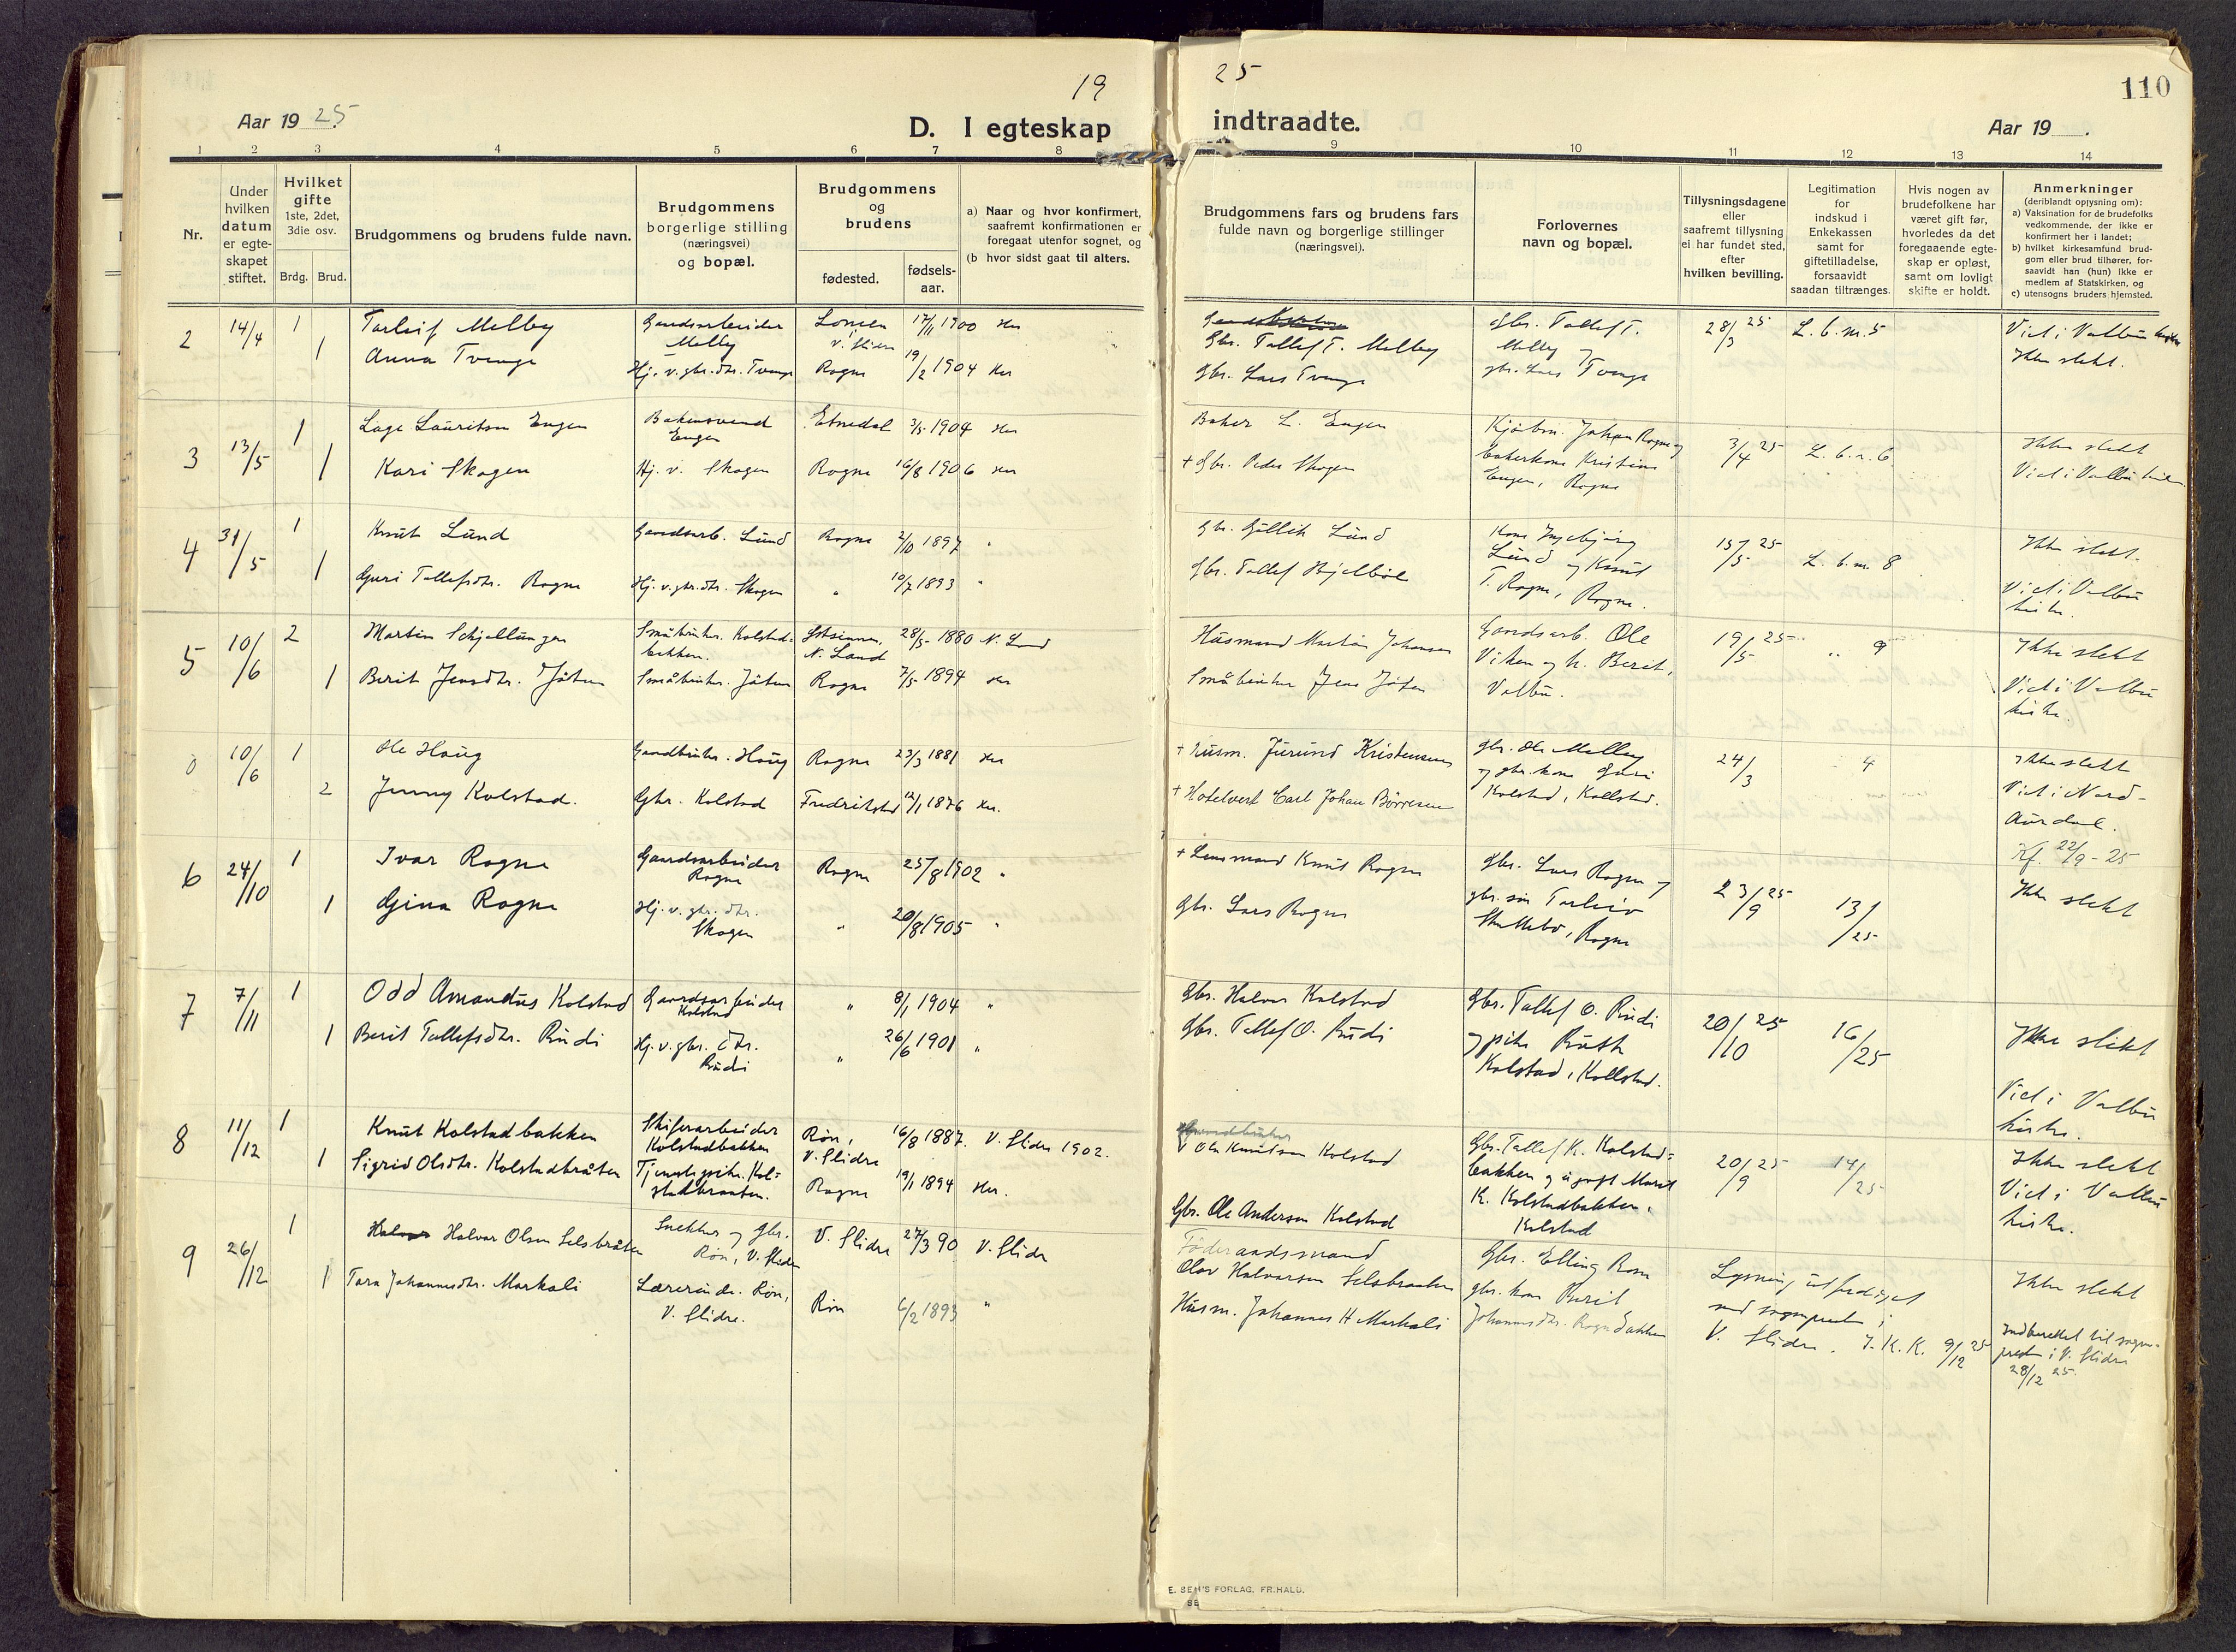 19 25
110
Aar 19 25.
D. I egteskap indtraadte.
Aar 19 .
1 2 3 4 5 6 7 8 9 10 11 12 13 14
Nr.
Under hvilken datum er egteskapet stiftet.
Hvilket gifte 1ste, 2det, 3die osv.
Brdg. Brud.
Brudgommens og brudens fulde navn.
Brudgommens borgerlige stilling (næringsvei) og bopæl.
Brudgommens og brudens
fødested.
fødsels-aar.
a) Naar og hvor konfirmert, saafremt konfirmationen er foregaat utenfor sognet, og
(b hvor sidst gaat til alters.
Brudgommens fars og brudens fars fulde navn og borgerlige stillinger (næringsvei).
Forlovernes navn og bopæl.
Tillysningsdagene eller saafremt tillysning ei har fundet sted, efter hvilken bevilling.
Legitimation for indskud i Enkekassen samt for giftetilladelse, forsaavidt saadan tiltrænges.
Hvis nogen av brudefolkene har været gift før, hvorledes da det foregaaende egteskap er opløst, samt om lovligt skifte er holdt.
Anmerkninger (deriblandt opysning om):
a) Vaksination for de brudefolks vedkommende, der ikke er konfirmert her i landet;
b) hvilket kirkesamfund brudgom eller brud tilhører, forsaavidt han (hun) ikke er medlem af Statskirken, og
c) utensogns bruders hjemsted.
2 14/4 1 Tarleif Melby Gaardsarbeider Melby Lomen V. Slidre 17/11 1900 Her
Gbr. Tollef T. Melby
Gbr. Tollef T. Melby og gbr. Lars Tvenge
28/3 25 L. b. nr. 5
Viet i Volbu kirke
Ikke slekt.
1 Anna Tvenge Hj. v. gbr. dtr. Tvenge Rogne 19/2 1904 Her
Gbr. Lars Tvenge
3 13/5 1 Lage Lauritsen Engen Bakersvend Engen Etnedal 3/5 1904 Her
Baker L. Engen
Kjøbm. Johan Rogne og bakerkone Kristine Engen, Rogne
3/4 25 L. b. n. 6
Ikke slekt
Viet i Volbu kirke
1 Kari Skogen Hj. v. Skogen Rogne 16/8 1906 Her
+ Gbr. Peder Skogen
4 31/5 1 Knut Lund Gaardsarb. Lund Rogne 2/10 1897 "
Gbr. Gullik Lund
Kone Ingebjørg Lund og Knut T. Rogne, Rogne.
15/5 25 L. b. nr. 8
Ikke slekt.
Viet i Volbu kirke.
1 Guri Tollefsdtr. Rogne Hj. v. gbr. dtr. Skogen " 10/7 1893 "
Gbr. Tollef Hjelbøle
5 10/6 2 Martin Schjellungen Småbruker. Kolstadbakken. N. Land 28/5 1880 N. Land
Husmand Martin Johansen
Gaardsarb. Ole Viken og h. Berit, Volbu.
19/5 25 " 9
Ikke slekt
Viet i Volbu kirke.
1 Berit Jensdtr. Jøten Småbruker. Jøten Rogne 7/5 1894 Her
Småbruker Jens Jøten
0 10/6 1 Ole Haug Gaardbruker. Haug Rogne 23/3 1881 Her
+ Husm. Jørund Kristensen
Gbr. Ole Melby og gbr. kone Guri Kolstad, Kollstad.
24/3 4
Ikke slekt
Viet i Nord-Aurdal.
2 Jenny Kolstad. Gbr. Kolstad Fredrikstad 12/1 1876 Her.
+ Hotelvert Carl Johan Børresen
6 24/10 1 Ivar Rogne Gaardsarbeider Rogne Rogne 25/8 1902 "
+ Lensmand Knut Rogne
Gbr. Lars Rogne og gbr. søn Torleiv Skattebo, Rogne
23/9 25 13/25
Kf. 22/9 - 25
Ikke slekt
1 Gina Rogne Hj. v. gbr. dtr. Skogen " 20/8 1905 "
Gbr. Lars Rogne
7 7/11 1 Odd Amandus Kolstad Gaardsarbeider Kolstad " 8/1 1904 "
Gbr. Halvor Kolstad
Gbr. Tollef O. Rudi og pike Ruth Kolstad, Kollstad.
20/10 25 16/25
Ikke slekt
Viet i Volbu kirke.
1 Berit Tollefsdtr. Rudi Hj. v. gbr. dtr. Rudi " 26/6 1901 "
Gbr. Tollef O. Rudi
8 11/12 1 Knut Kolstadbakken Skiferarbeider Kolstadbakken Røn, V. Slidre 16/8 1887. V. Slidre 1902.
Gaardbruker Ole Knutson Kolstad
Gbr. Tollef K. Kolstadbakken og ugift Marit K. Kolstadbakken, Kolstad
20/9 25 14/25
Ikke slekt
Viet i Volbu kirke.
1 Sigrid Olsdtr. Kolstadbråten Tjenestepike. Kolstadbraaten. Rogne 19/1 1894 Her.
Gbr. Ole Anderson Kolstad
9 26/12 1 Halvor Olsen Selsbråten Snekker og gbr. Røn, V. Slidre V. Slidre 27/3 90 V. Slidre
Føderaadsmand Olav Halvorsen Selsbraaten
Gbr. Elling Rom gbr. kone Berit Johannesdtr. Rognebakken
Lysning utferdiget ved sogneprest i V. Slidre. J. K. K. 9/12 25
Ikke slekt
Indberettet til sogneprest i V. Slidre 28/12 25.
1 Tora Johannesdtr. Markali Lærerinde. Røn, V. Slidre. Røn 6/2 1893 "
Husm. Johannes H Markali
E. SEM'S FORLAG, FR.HALD.